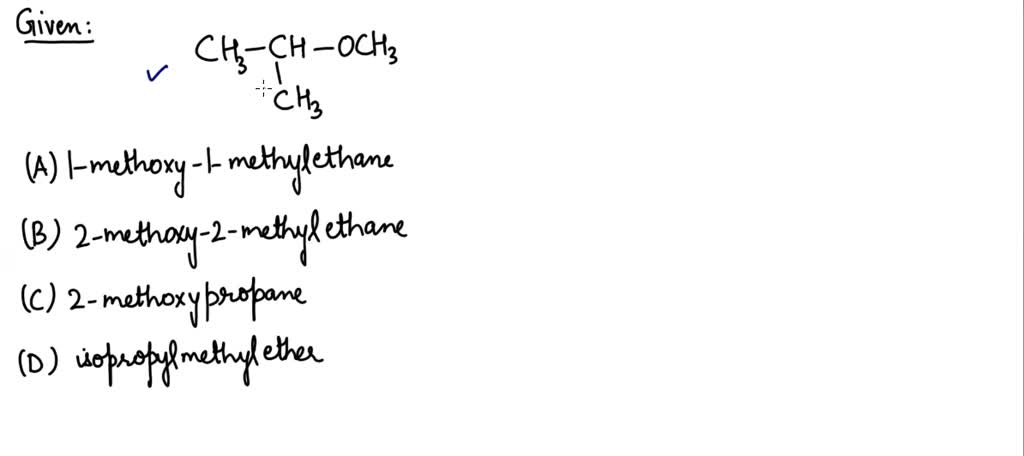 Given:
CH₃-CH-OCH₃
CH₃
(A) 1-methoxy-1-methylethane
(B) 2-methoxy-2-methylethane
(C) 2-methoxypropane
(D) isopropylmethylether